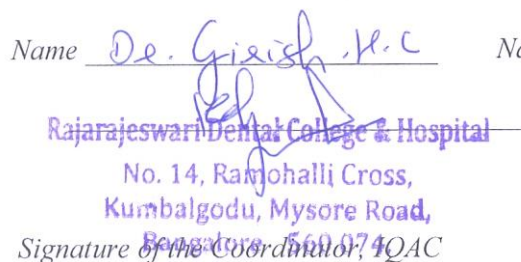 Name Dr. Girish .H.C Na
Rajarajeswari Dental College & Hospital
No. 14, Ramohalli Cross,
Kumbalgodu, Mysore Road,
Bangalore - 560 074
Signature of the Coordinator, IQAC